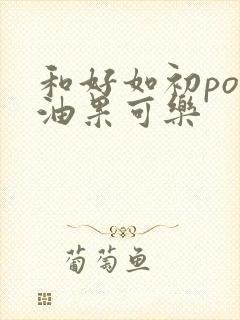 和好如初po
油果可樂
葡萄鱼